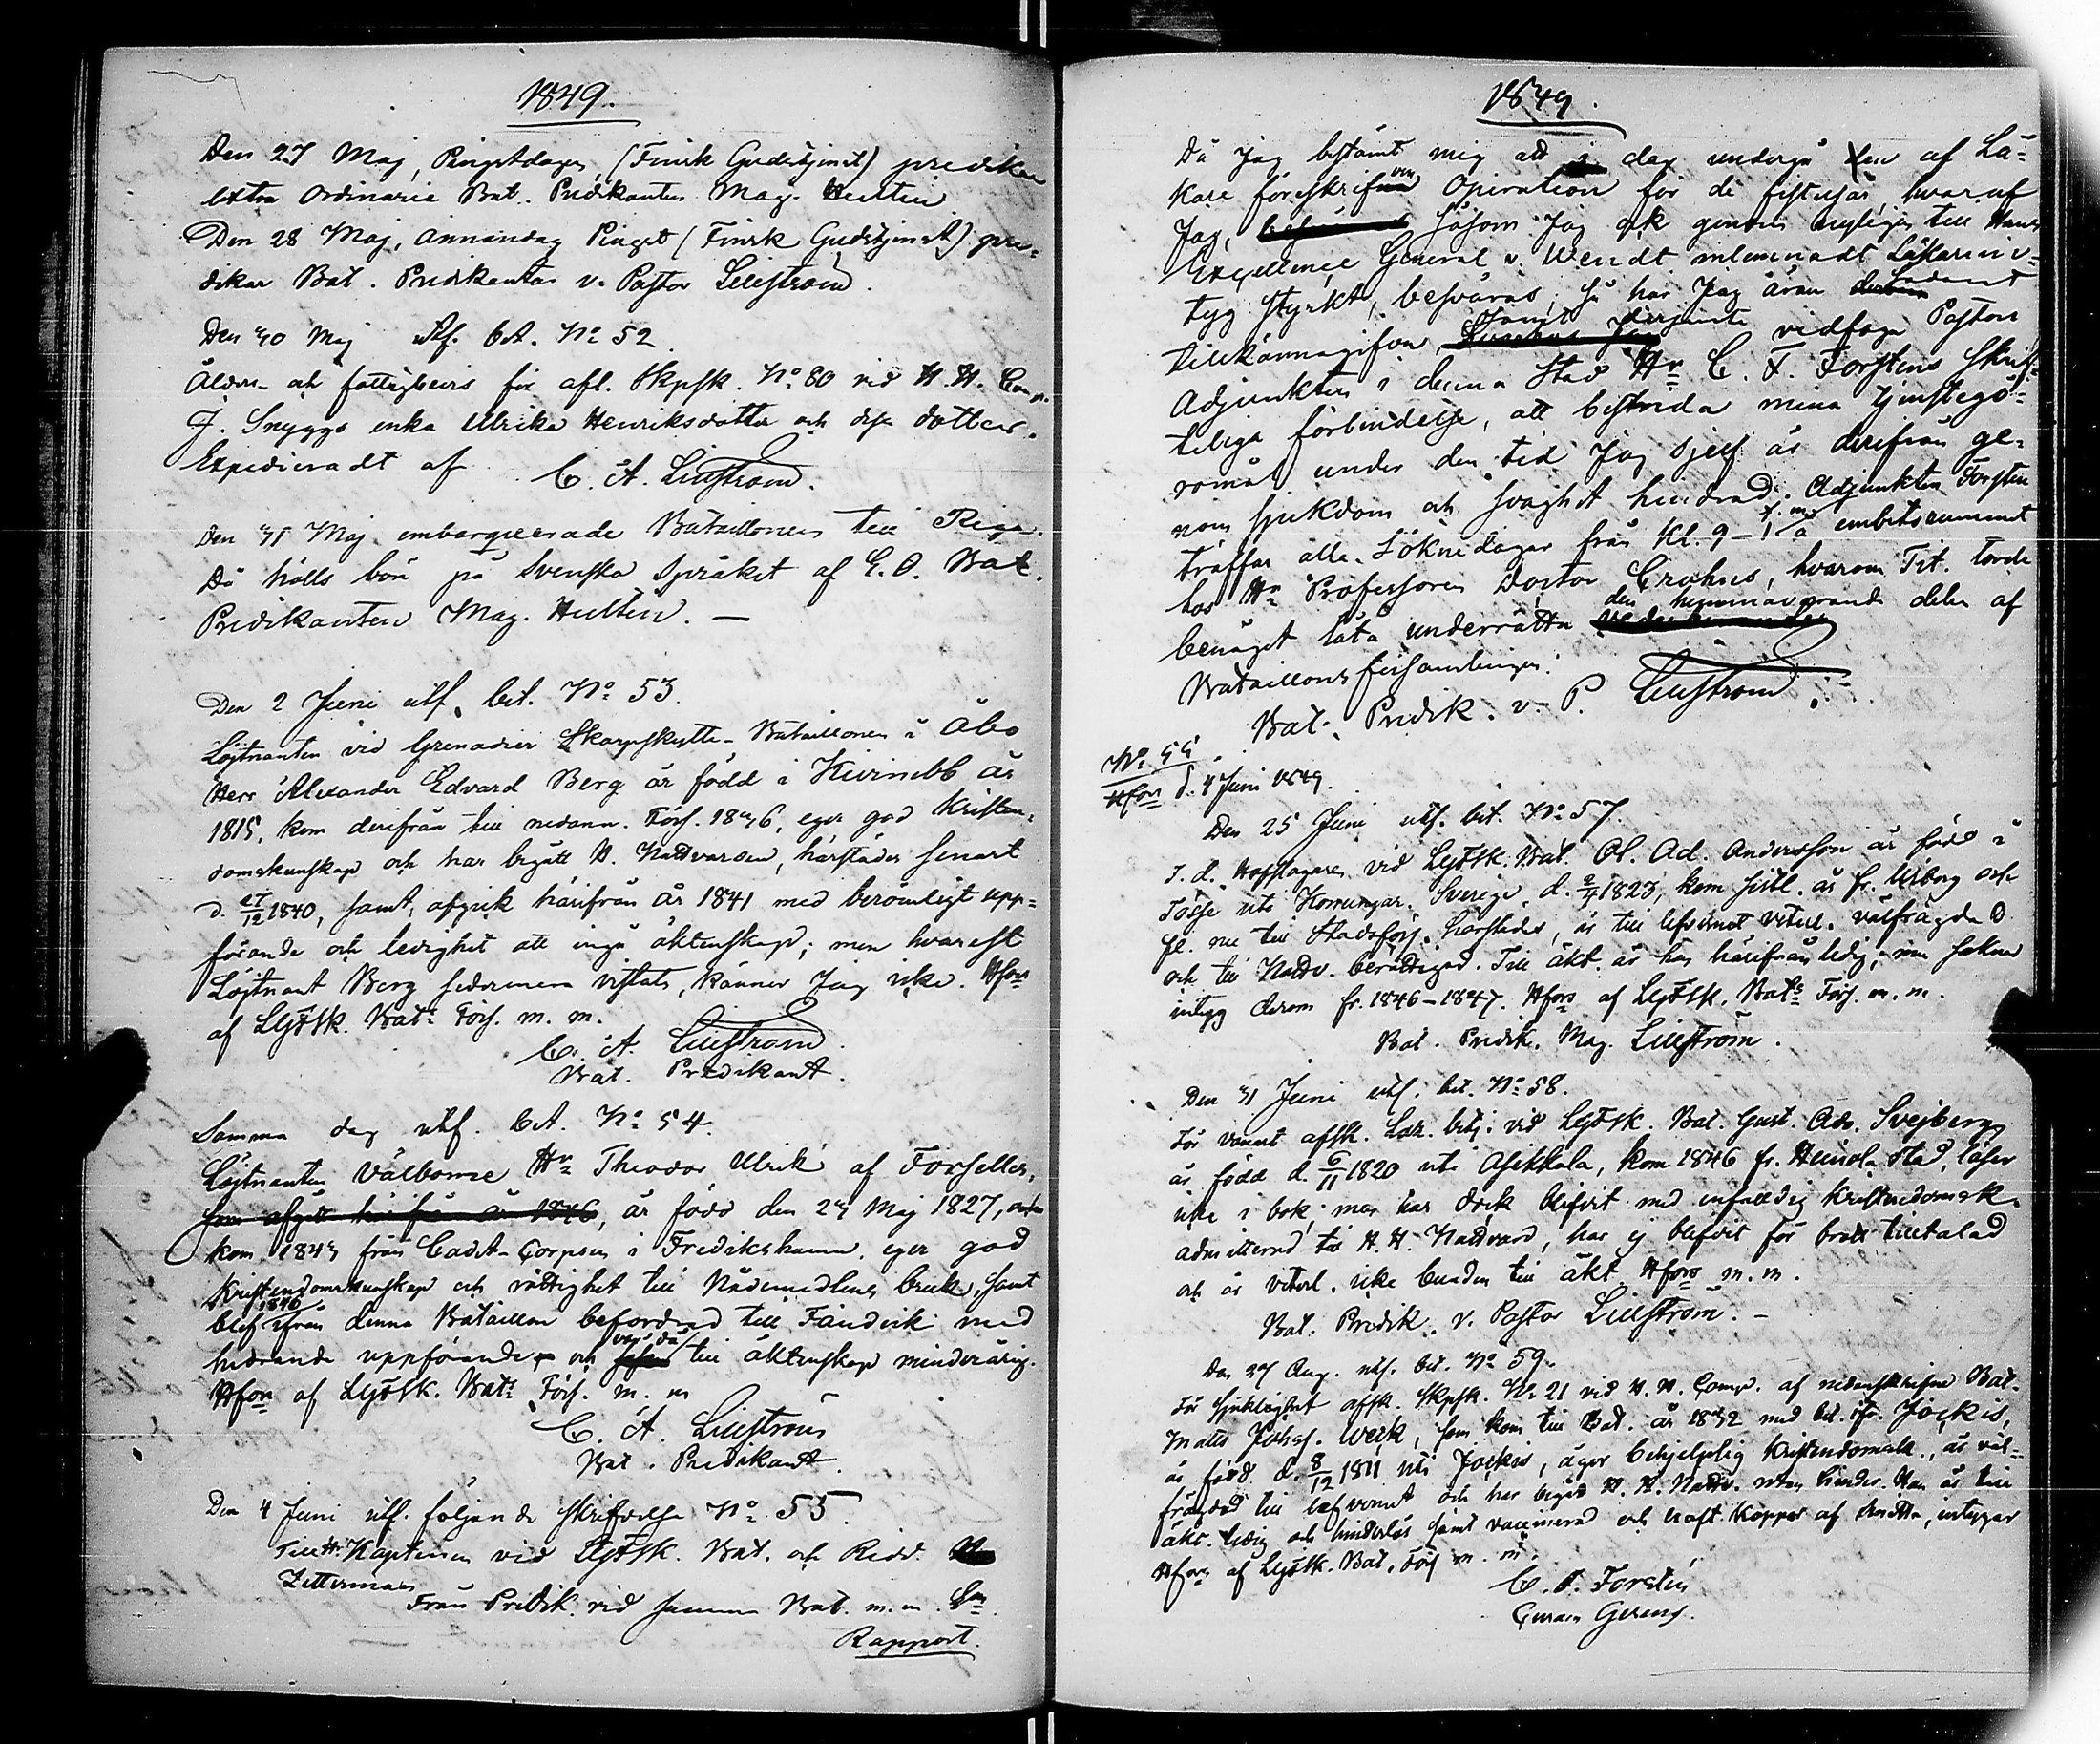 1849.
Den 27 Maj, Pingstdagen, (Finsk Gudstjenst) predikar
extra Ordinarie Bat. Predikanten Mag. Hultin
Den 28 Maj, Annandag Pingst (Finsk Gudstjenst) pre-
dikar Bat. Predikanten v. Pastor Lillström.
Den 30 Maj utf. bet. No 52
Ålders- och fattigbevis för afl. Skpsk. No 80 vid H. H. Comp.
J. Snyggs enka Ulrika Henriksdotter och dess dotter.
Expedieradt af C. A. Lillström.
Den 31 Maj embarquerade Bataillonen till Riga.
Då hölls bön på Svenska Språket af E. O. Bat.
Predikanten Mag. Hultin. —
Den 2 Juni utf. bet. No 53.
Löjtnanten vid Grenadier Skarpskytte-Bataillonen i Åbo
Herr Alexander Edvard Berg är född i Kivinebb år
1815, kom derifrån till nedann. Förs. 1836, eger god Kristen-
domskunskap och har begått H. Nattvarden, härstädes senast
d. 27/12 1840, samt afgick härifrån år 1841 med berömligt upp-
förande och ledighet att ingå äktenskap; men hvarest
Löjtnant Berg sedermera vistats, känner Jag icke. Hfors
af LgFSk. Bats Förs. m. m.
C. A. Lillström.
Bat. Predikant.
Samma dag utf. bet. No 54.
Löjtnanten Välborne Hr Theodor Ulrik af Forselles,
som afgått härifrån år 1846, är född den 23 Maj 1827,
kom 1843 från Cadet-Corpsen i Fredrikshamn, eger god
Kristendomskunskap och rättighet till Nådemedlens bruk, samt
1846
blef ifrån denna Bataillon befordrad till Fändrik med
hedrande uppförande och var då till äktenskap minderårig.
Hfors af LgFSk. Bats Förs. m. m
C. A. Lillström
Bat. Predikant.
Den 4 Juni utf. följande Skrifvelse No 55.
Till Hr Kaptenen vid LgFSk. Bat. och Ridd.
Zitterman
Från Predik. vid samma Bat. m. m.
Rapport.
1849.
Då Jag bestämt mig att i dag undergå den af Lä-
kare föreskrifven Operation för de fistelsår, hvaraf
Jag, såsom Jag ock genom nyligen till Hans
Excellence General v. Wendt inlemnadt Läkareine-
tyg styrkt, besväras, så har Jag äran sådant
tillkännagifva, samt vidfoga Pastors
Adjunkten i denna Stad Hr C. F. Forstens skrift-
teliga förbindelse, att bestrida mina tjenstegö-
romål under den tid Jag sjelf är derifrån ge-
nom sjukdom och svaghet hindrad. Adjunkten Forsten
träffas alla Söknedagar från Kl. 9 - 1 f. m. å embetsrummet
hos Hr Professoren Doctor Crohns, hvarom Tit. torde
benäget låta underrätta den hemmavarande delen af
Bataillonsförsamlingen.
Bat. Predik. v. P. Lillström
No 55
Hfors d. 4 Juni 1849.
Den 25 Juni utf. bet. No 57.
F. d. Hofslagaren vid LgFSk. Bat. Ol. Ad. Andersson är född i
Tösse uti Sverige, d. 2/4 1823, kom sistl. år fr. Wiborg och
fl. nu till Stadsförs. härstädes, är till lefvernet veterl. välfrägdad
och till Nattv. berättigad. Till äkt. är han härifrån ledig; men saknar
intyg derom fr. 1846-1847. Hfors af LgFSk. Bats Förs. m. m.
Bat. Predik. Mag. Lillström.
Den 31 Juni utf. bet. No 58.
För vanart afsk. Laz. betj. vid LgFSk. Bat. Gust. Adr. Svejberg
är född d. 6/11 1820 uti Asikkala, kom 1846 fr. Heinola Stad, läser
icke i bok; men har dock blifvit med enfaldig Kristendomsk.
admitterad till H. H. Nattvard, har ej blifvit för brott tilltalad
och är veterl. icke bunden till äkt. Hfors m. m.
Bat. Predik. v. Pastor Lillström. -
Den 27 Aug. utf. bet. No 59.
För sjuklighet afsk. Skpsk. No 21 vid H. H. Comp. af nedanskrifne Bat.
Matts Johss. Werk, som kom till Bat. år 1832 med bet. ifr. Jockis,
är född d. 8/12 1811 uti Jockis, äger behjelplig Kristendomsk., är väl-
frägdad till lefvernet och har begått H. H. Nattv. utan hinder. Han är till
äkt. ledig och hinderlös samt vaccinerad och haft koppor af smitta, intygar
Hfors af LgFSk. Bat. Förs m. m.
C. F. Forstén
Curam Gerens.